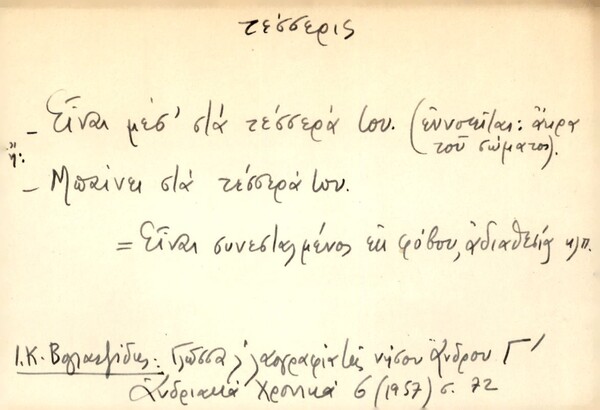 τέσσερις
– Εἶναι μέσ' στὰ τέσσερά του. (ἐννοεῖται: ἄκρα
τοῦ σώματος).
ἤ:
– Μπαίνει στὰ τέσσερά του.
= Εἶναι συνεσταλμένος ἐκ φόβου, ἀδιαθεσίας κλπ.
Ι. Κ. Βογιατζίδης: Γλῶσσα κ' λαογραφία τῆς νήσου Ἄνδρου Γ'
Ἀνδριακὰ Χρονικὰ 6 (1957) σ. 72